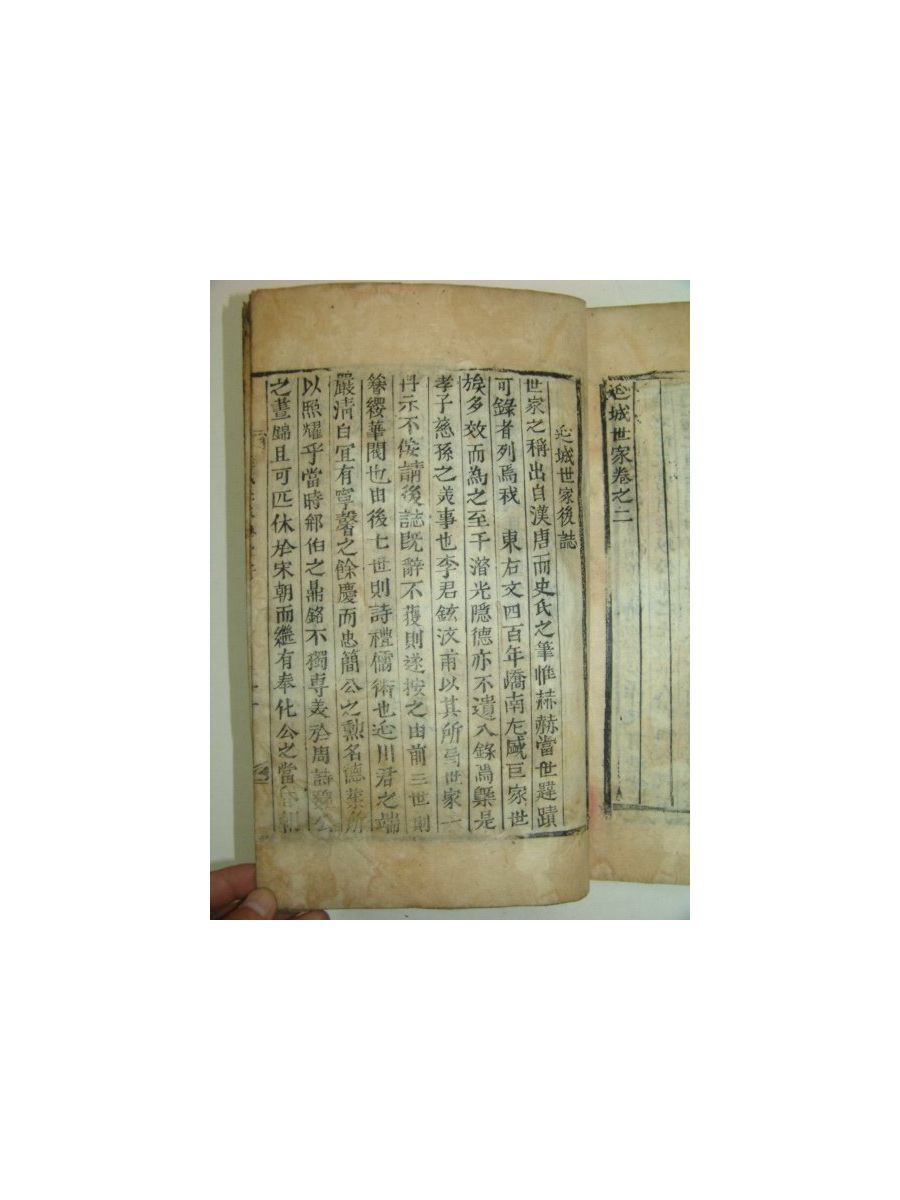 延城世家卷之二
延城世家後誌
世家之稱出自漢唐而史氏之筆惟赫赫當世韙蹟
可錄者列焉我 東右文四百年嶠南尤盛巨家世
族多效而為之至于潛光隱德亦不遺入錄焉槩是
孝子慈孫之美事也李君鉉汶甫以其所爲世家一
件示不佞請後誌旣辭不獲則遂按之由前三世則
簪纓華閥也由後七世則詩禮儒術也延川君之端
嚴淸白宜有寧馨之餘慶而忠簡公之勲名德業所
以照耀乎當時郇伯之鼎銘不獨專美於周詩魏公
之晝錦且可匹休於宋朝而繼有奉化公之當昏朝